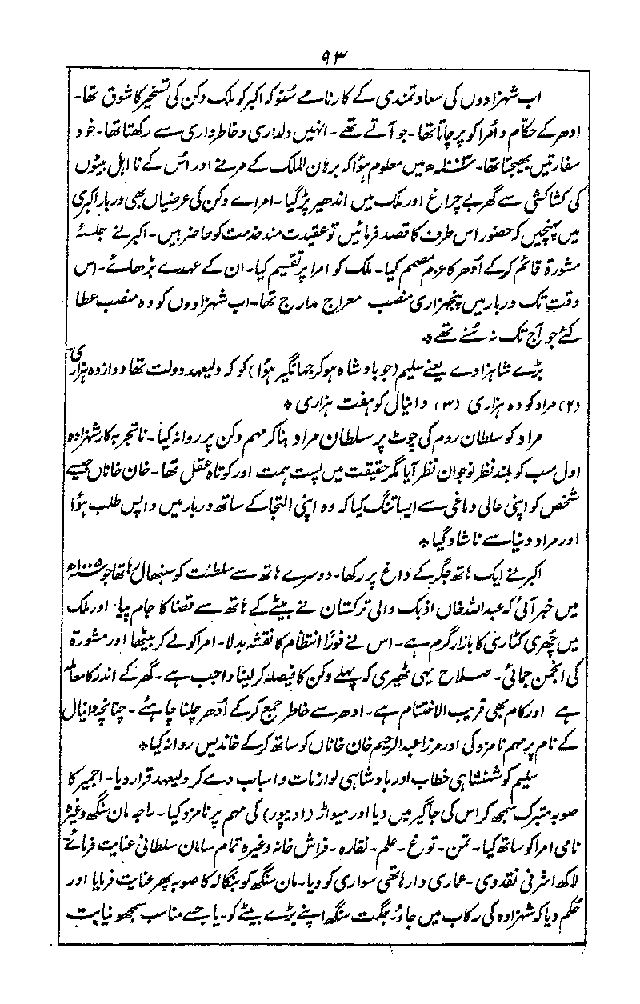 ۹۳
اب شہزادوں کی سعادتمندی کے کارنامے سنو کہ اکبر کو ملک دکن کی تسخیر کا شوق تھا۔
ادھر کے حکام و امرا کو پرچاتا تھا۔ جو آتے تھے۔ انہیں دلداری و خاطرداری سے رکھتا تھا۔ خود
سفارتیں بھیجتا تھا۔ میں معلوم ہؤا کہ برہان الملک کے مرنے اور اس کے نااہل بیٹوں
کی کشاکشی سے گھر بے چراغ اور ملک میں اندھیر پڑ گیا۔ امراے دکن کی عرضیاں بھی دربار اکبری
میں پہنچیں کہ حضور اس طرف کا قصد فرمائیں تو عقیدت مند خدمت کو حاضر ہیں۔ اکبر نے جلسۂ
مشورۃ قائم کرکے اُدھر کا عزم مصمم کیا۔ ملک کو امرا پر تقسیم کیا۔ ان کے عہدے بڑھائے۔ اس
وقت تک دربار میں پنجہزاری منصب معراج مدارج تھا۔ اب شہزادوں کو وہ منصب عطا
کئے جو آج تک نہ سُنے تھے *
بڑے شاہزادے یعنے سلیم (جو بادشاہ ہوکر جہانگیر ہؤا) کو کہ ولیعہد دولت تھا دوازدہ ہزاری
(۲) مراد کو دہ ہزاری (۳) دانیال کو ہفت ہزاری *
مراد کو سلطان روم کی چوٹ پر سلطان مراد بنا کر مہم دکن پر روانہ کیا۔ ناتجربہ کار شہزادہ
اول سب کو بلند نظر نوجوان نظر آیا مگر حقیقت میں پست ہمت اور کوتاہ عقل تھا۔ خان خاناں جیسے
شخص کو اپنی عالی دماغی سے ایسا تنگ کیا کہ وہ اپنی التجا کے ساتھ دربار میں واپس طلب ہؤا
اور مراد دنیا سے ناشاد گیا *
اکبر نے ایک ہاتھ جگر کے داغ پر رکھا۔ دوسرے ہاتھ سے سلطنت کو سنبھال رہا تھا جو
میں خبر آئی کہ عبداللہ خاں اذبک والی ترکستان نے بیٹے کے ہاتھ سے قضا کا جام پیا۔ اور ملک
میں چھری کٹاری کا بازار گرم ہے۔ اس نے فوراً انتظام کا نقشہ بدلا۔ امرا کو لے کر بیٹھا اور مشورۃ
کی انجمن جمائی۔ صلاح یہی ٹھیری کہ پہلے دکن کا فیصلہ کر لینا واجب ہے۔ گھر کے اندر کا معاملہ
ہے اور کام بھی قریب الاختتام ہے۔ ادھر سے خاطر جمع کرکے اُدھر چلنا چاہئے۔ چنانچہ دانیال
کے نام پر مہم نامزد کی اور مرزا عبدالرحیم خان خاناں کو ساتھ کرکے خاندیس روانہ کیا *
سلیم کو شہنشاہی خطاب اور بادشاہی لوازمات و اسباب دے کر ولیعہد قرار دیا۔ اجمیر کا
صوبہ متبرک سمجھ کر اس کی جاگیر میں دیا اور میواڑ (اودیپور) کی مہم پر نامزد کیا۔ راجہ مان سنگھ وغیرہ
نامی امرا کو ساتھ کیا۔ تمن۔ توغ۔ علم۔ نقارہ۔ فراش خانہ وغیرہ تمام سامان سلطانی عنایت فرمائے
لاکھ اشرفی نقد دی۔ عماری دار ہاتھی سواری کو دیا۔ مان سنگھ کو بنگالہ کا صوبہ پھر عنایت فرمایا اور
حکم دیا کہ شہزادہ کی رکاب میں جاؤ۔ جگت سنگھ اپنے بڑے بیٹے کو۔ یا جسے مناسب سمجھو نیابت